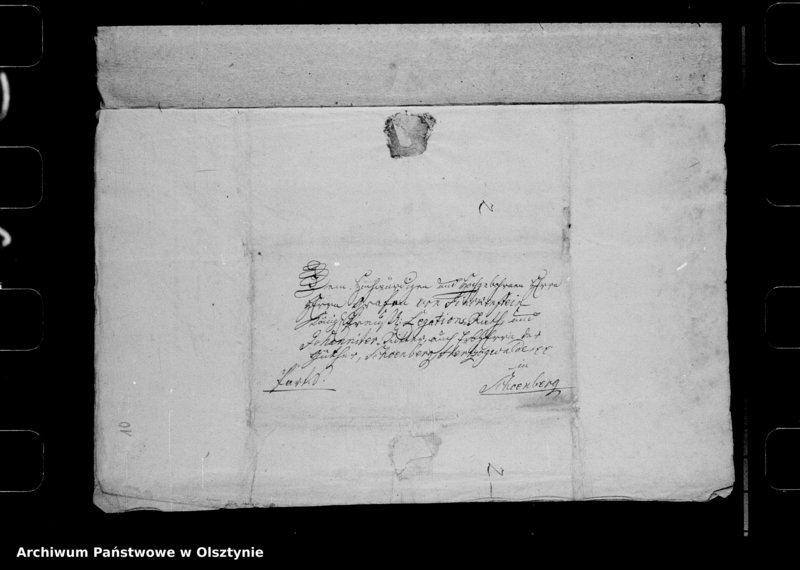 Dem Hochwürdigen und Hochgebohrnen Herrn
Herrn Grafen von Finckenstein
Königl. Preuß. Legations Rath und
Johanniter Ritter, auch Erbherrn der
Güther, Schoenberg, Herzogswalde xx
in
Franco. Schoenberg
10
Archiwum Państwowe w Olsztynie